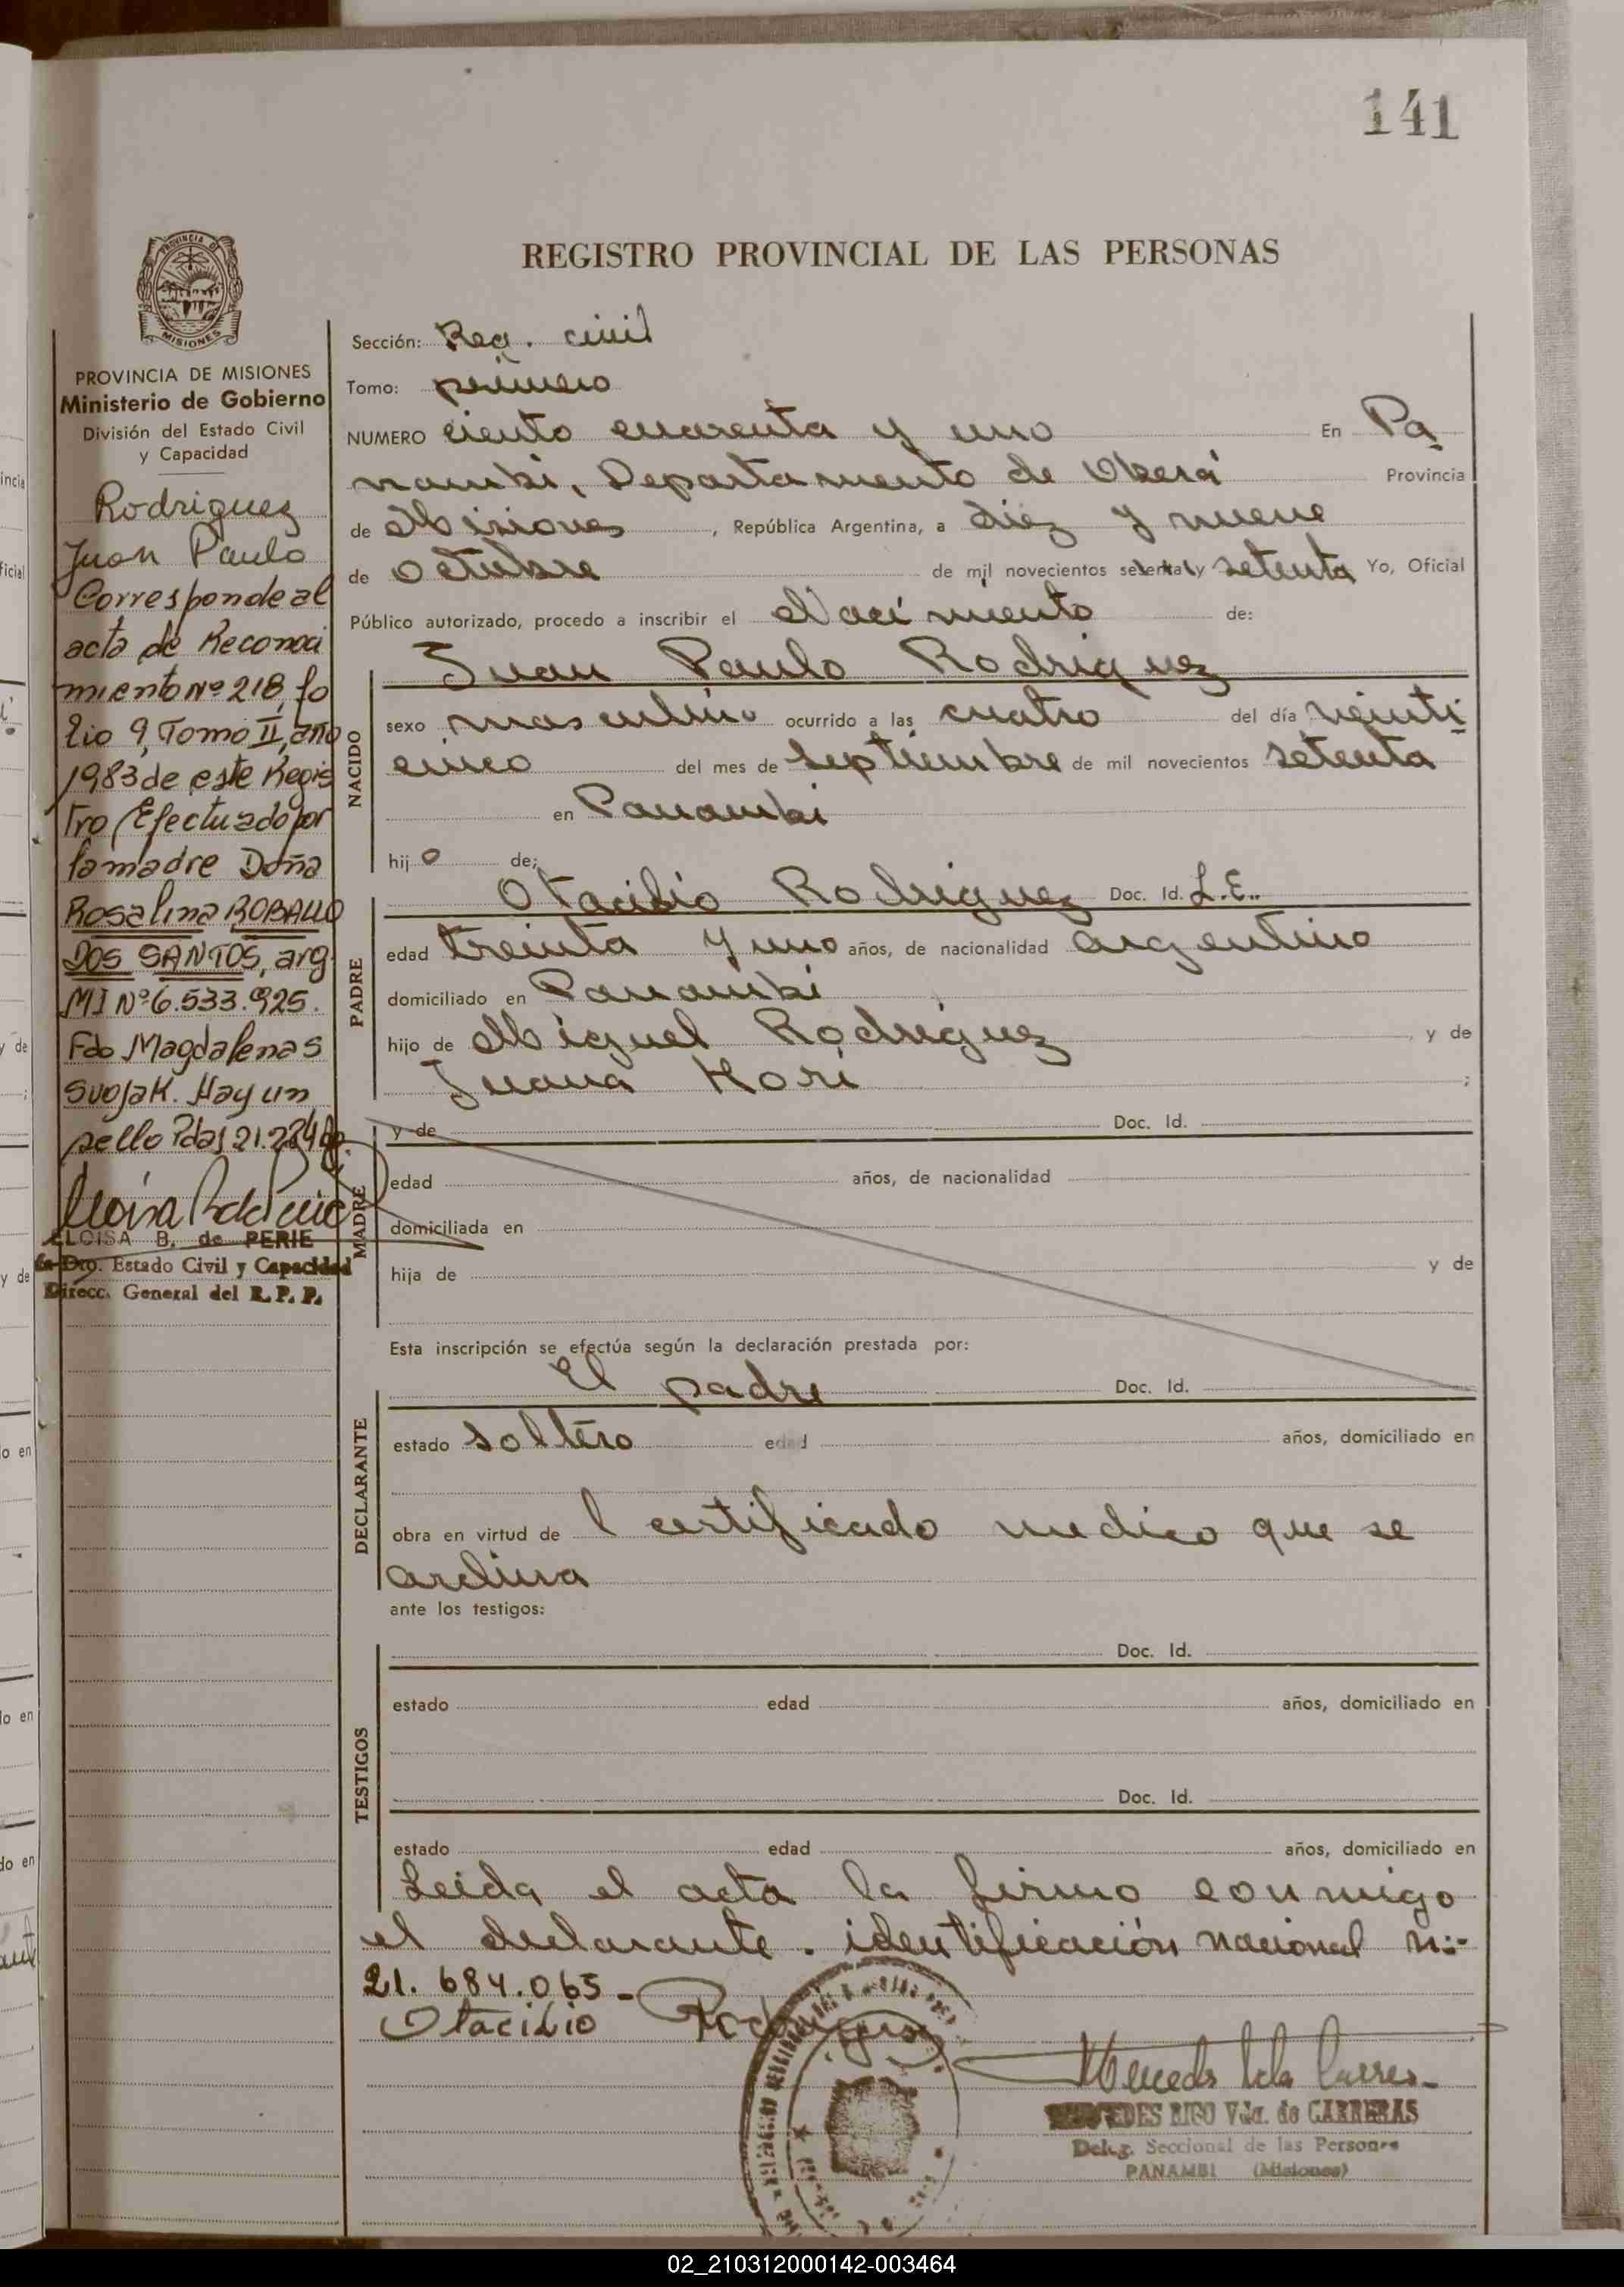 141
REGISTRO PROVINCIAL DE LAS PERSONAS
PROVINCIA DE MISIONES
PROVINCIA DE MISIONES
Ministerio de Gobierno
División del Estado Civil
y Capacidad
Rodriguez
Juan Paulo
Corresponde al
acta de Reconoci
miento Nº 218, fo
lio 9, Tomo II, año
1983 de este Regis
tro, Efectuado por
la madre Doña
Rosalina ROBALLO
DOS SANTOS, arg
MI Nº 6.533.925.
Fdo Magdalena S
Svojak. Hay un
sello Pdas 21.2.84
ELOISA B. de PERIE
Dto. Estado Civil y Capacidad
Direcc. General del R. P. P.
Sección: Reg. civil
Tomo: primero
NUMERO ciento cuarenta y uno En Pa
nambi, Departamento de Oberá Provincia
de Misiones, República Argentina, a diez y nueve
de Octubre de mil novecientos sesenta y setenta Yo, Oficial
Público autorizado, procedo a inscribir el Nacimiento de:
Juan Paulo Rodriguez
NACIDO
sexo masculino ocurrido a las cuatro del día veinti
cinco del mes de Septiembre de mil novecientos setenta
en Panambi
hijo de:
PADRE
Otacilio Rodriguez Doc. Id. L.E..
edad treinta y uno años, de nacionalidad argentino
domiciliado en Panambi
hijo de Miguel Rodriguez y de
Juana Mori ;
MADRE
y de Doc. Id.
edad años, de nacionalidad
domiciliada en
hija de y de
Esta inscripción se efectúa según la declaración prestada por:
DECLARANTE
El padre Doc. Id.
estado soltero edad años, domiciliado en
obra en virtud de l certificado medico que se
archiva
ante los testigos:
TESTIGOS
Doc. Id.
estado edad años, domiciliado en
Doc. Id.
estado edad años, domiciliado en
Leida el acta la firmo conmigo
el declarante. identificación nacional n:-
21.684.065-
Otacilio Rodriguez
MERCEDES RIGO Vda. de CARRERAS
Deleg. Seccional de las Personas
PANAMBI (Misiones)
02_210312000142-003464